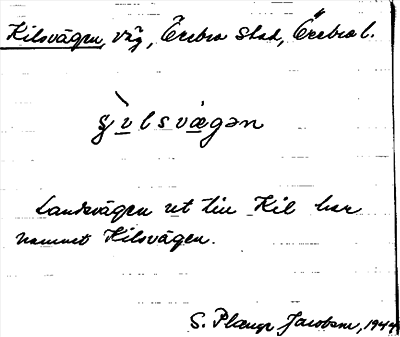 Kilsvägen, väg, Örebro stad, Örebro l.
Landsvägen ut till Kil har
namnet Kilsvägen.
S. Jacobson, 1944